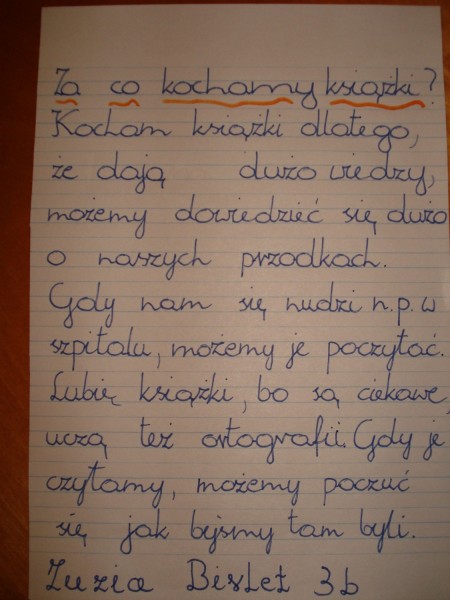 Za co kochamy książki?
Kocham książki dlatego,
że dają dużo wiedzy,
możemy dowiedzieć się dużo
o naszych przodkach.
Gdy nam się nudzi n.p. w
szpitalu, możemy je poczytać.
Lubię książki, bo są ciekawe,
uczą też ortografii. Gdy je
czytamy, możemy poczuć
się jak byśmy tam byli.
Zuzia 3b